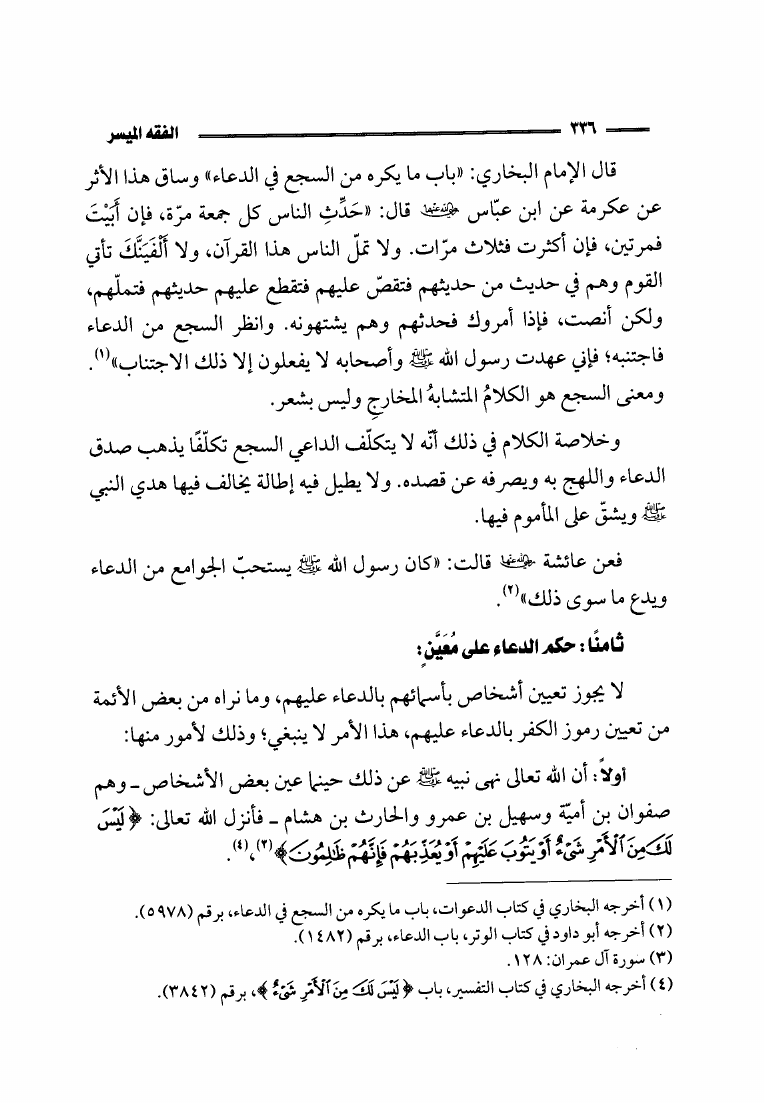 ٣٣٦ الفقه الميسر
قال الإمام البخاري: «باب ما يكره من السجع في الدعاء» وساق هذا الأثر
عن عكرمة عن ابن عبّاس رضي الله عنهما قال: «حَدِّثِ الناس كل جمعة مرّة، فإن أَبَيْتَ
فمرتين، فإن أكثرت فثلاث مرّات. ولا تملّ الناس هذا القرآن، ولا أَلْفَيَنَّكَ تأتي
القوم وهم في حديث من حديثهم فتقصّ عليهم فتقطع عليهم حديثهم فتملّهم،
ولكن أنصت، فإذا أمروك فحدثهم وهم يشتهونه. وانظر السجع من الدعاء
فاجتنبه؛ فإني عهدت رسول الله ﷺ وأصحابه لا يفعلون إلا ذلك الاجتناب»(١).
ومعنى السجع هو الكلامُ المتشابهُ المخارجِ وليس بشعر.
وخلاصة الكلام في ذلك أنّه لا يتكلّف الداعي السجع تكلّفًا يذهب صدق
الدعاء واللهج به ويصرفه عن قصده. ولا يطيل فيه إطالة يخالف فيها هدي النبي
ﷺ ويشقّ على المأموم فيها.
فعن عائشة رضي الله عنها قالت: «كان رسول الله ﷺ يستحبّ الجوامع من الدعاء
ويدع ما سوى ذلك»(٢).
ثامنًا: حكم الدعاء على مُعَيَّنٍ:
لا يجوز تعيين أشخاص بأسمائهم بالدعاء عليهم، وما نراه من بعض الأئمة
من تعيين رموز الكفر بالدعاء عليهم، هذا الأمر لا ينبغي؛ وذلك لأمور منها:
أولاً: أن الله تعالى نهى نبيه ﷺ عن ذلك حينما عين بعض الأشخاص ـ وهم
صفوان بن أميّة وسهيل بن عمرو والحارث بن هشام ـ فأنزل الله تعالى: ﴿لَيْسَ
لَكَ مِنَ ٱلْأَمْرِ شَىْءٌ أَوْ يَتُوبَ عَلَيْهِمْ أَوْ يُعَذِّبَهُمْ فَإِنَّهُمْ ظَٰلِمُونَ﴾(٣)،(٤).
(١) أخرجه البخاري في كتاب الدعوات، باب ما يكره من السجع في الدعاء، برقم (٥٩٧٨).
(٢) أخرجه أبو داود في كتاب الوتر، باب الدعاء، برقم (١٤٨٢).
(٣) سورة آل عمران: ١٢٨.
(٤) أخرجه البخاري في كتاب التفسير، باب ﴿لَيْسَ لَكَ مِنَ ٱلْأَمْرِ شَىْءٌ﴾، برقم (٣٨٤٢).